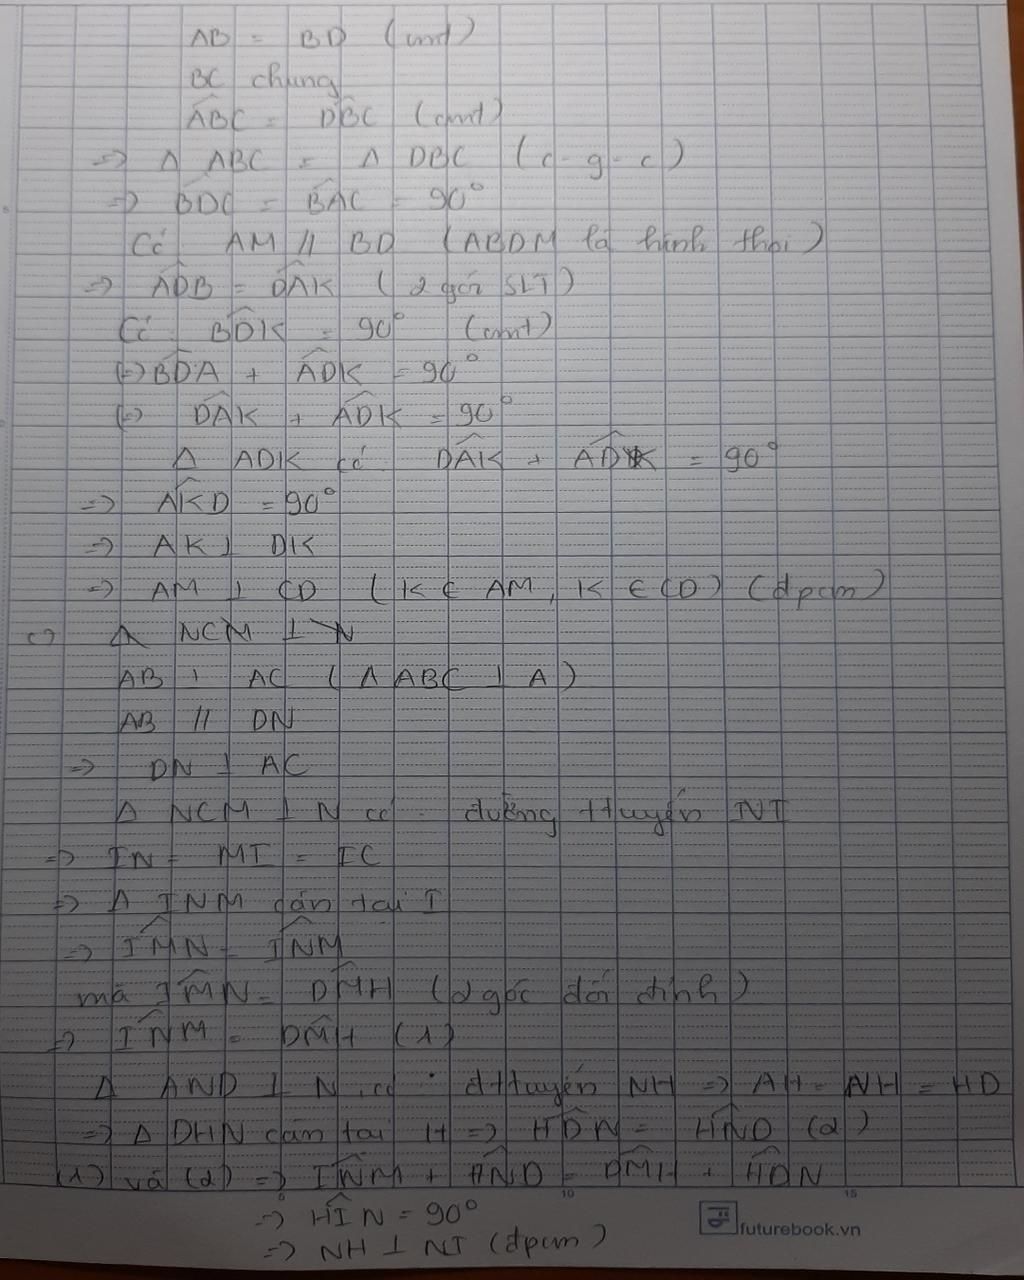 AB = BD (cmt)
BC chung
ABC = DBC (cmt)
=> Δ ABC = Δ DBC (c-g-c)
=> BDC = BAC = 90°
Có AM // BD (ABDM là hình thoi)
=> ADB = DAK (2 góc SLT)
Có BDK = 90° (cmt)
(=) BDA + ADK = 90°
(=) DAK + ADK = 90°
Δ ADK có DAK + ADK = 90°
=> AKD = 90°
=> AK ⊥ DK
=> AM ⊥ CD (K ∈ AM, K ∈ CD) (đpcm)
c) Δ NCM ⊥ N
AB ⊥ AC (Δ ABC ⊥ A)
AB // DN
=> DN ⊥ AC
Δ NCM ⊥ N có đường ttuyến NI
=> IN = MI = IC
=> Δ INM cân tại I
=> IMN = INM
mà IMN = DMH (2 góc đối đỉnh)
=> INM = DMH (1)
Δ AND ⊥ N có đttuyến NH => AH = NH = HD
=> Δ DHN cân tại H => HDN = HND (2)
(1) và (2) => INM + HND = DMH + HDN
=> HIN = 90°
=> NH ⊥ NI (đpcm)
5 10 15
futurebook.vn